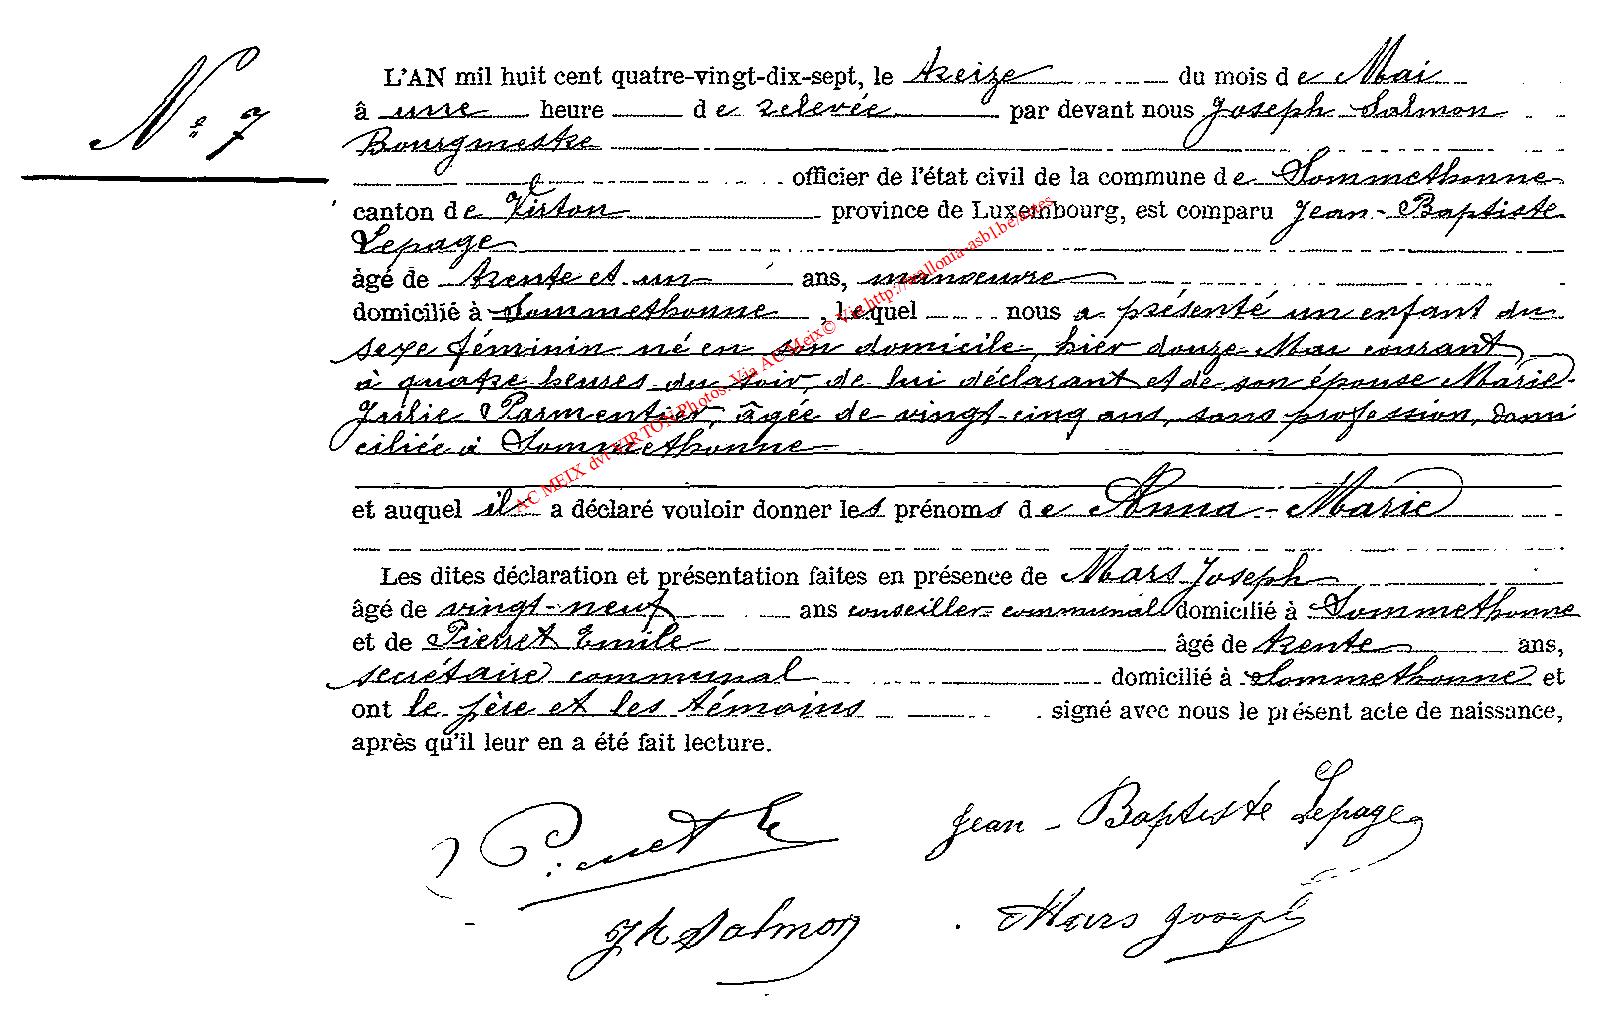 Nº 7
L'AN mil huit cent quatre-vingt-dix-sept, le treize du mois de Mai
à une heure de relevée par devant nous Joseph Salmon
Bourgmestre
officier de l'état civil de la commune de Sommethonne
canton de Virton province de Luxembourg, est comparu Jean-Baptiste
Lepage
âgé de trente et un ans, manœuvre
domicilié à Sommethonne, lequel nous a présenté un enfant du
sexe féminin né en son domicile, hier douze Mai courant,
à quatre heures du soir, de lui déclarant et de son épouse Marie-
Julie Parmentier, âgée de vingt-cinq ans, sans profession, domi
ciliée à Sommethonne
et auquel il a déclaré vouloir donner les prénoms de Anna-Marie
Les dites déclaration et présentation faites en présence de Mars Joseph
âgé de vingt-neuf ans conseiller communal domicilié à Sommethonne
et de Pierret Emile âgé de trente ans,
secrétaire communal domicilié à Sommethonne et
ont le père et les témoins signé avec nous le présent acte de naissance,
après qu'il leur en a été fait lecture.
Pierret E Jean-Baptiste Lepage
Jh Salmon Mars Joseph
AC MEIX dvt VIRTON Photos. Via AC Meix© Via http://wallonia-asbl.be/actes